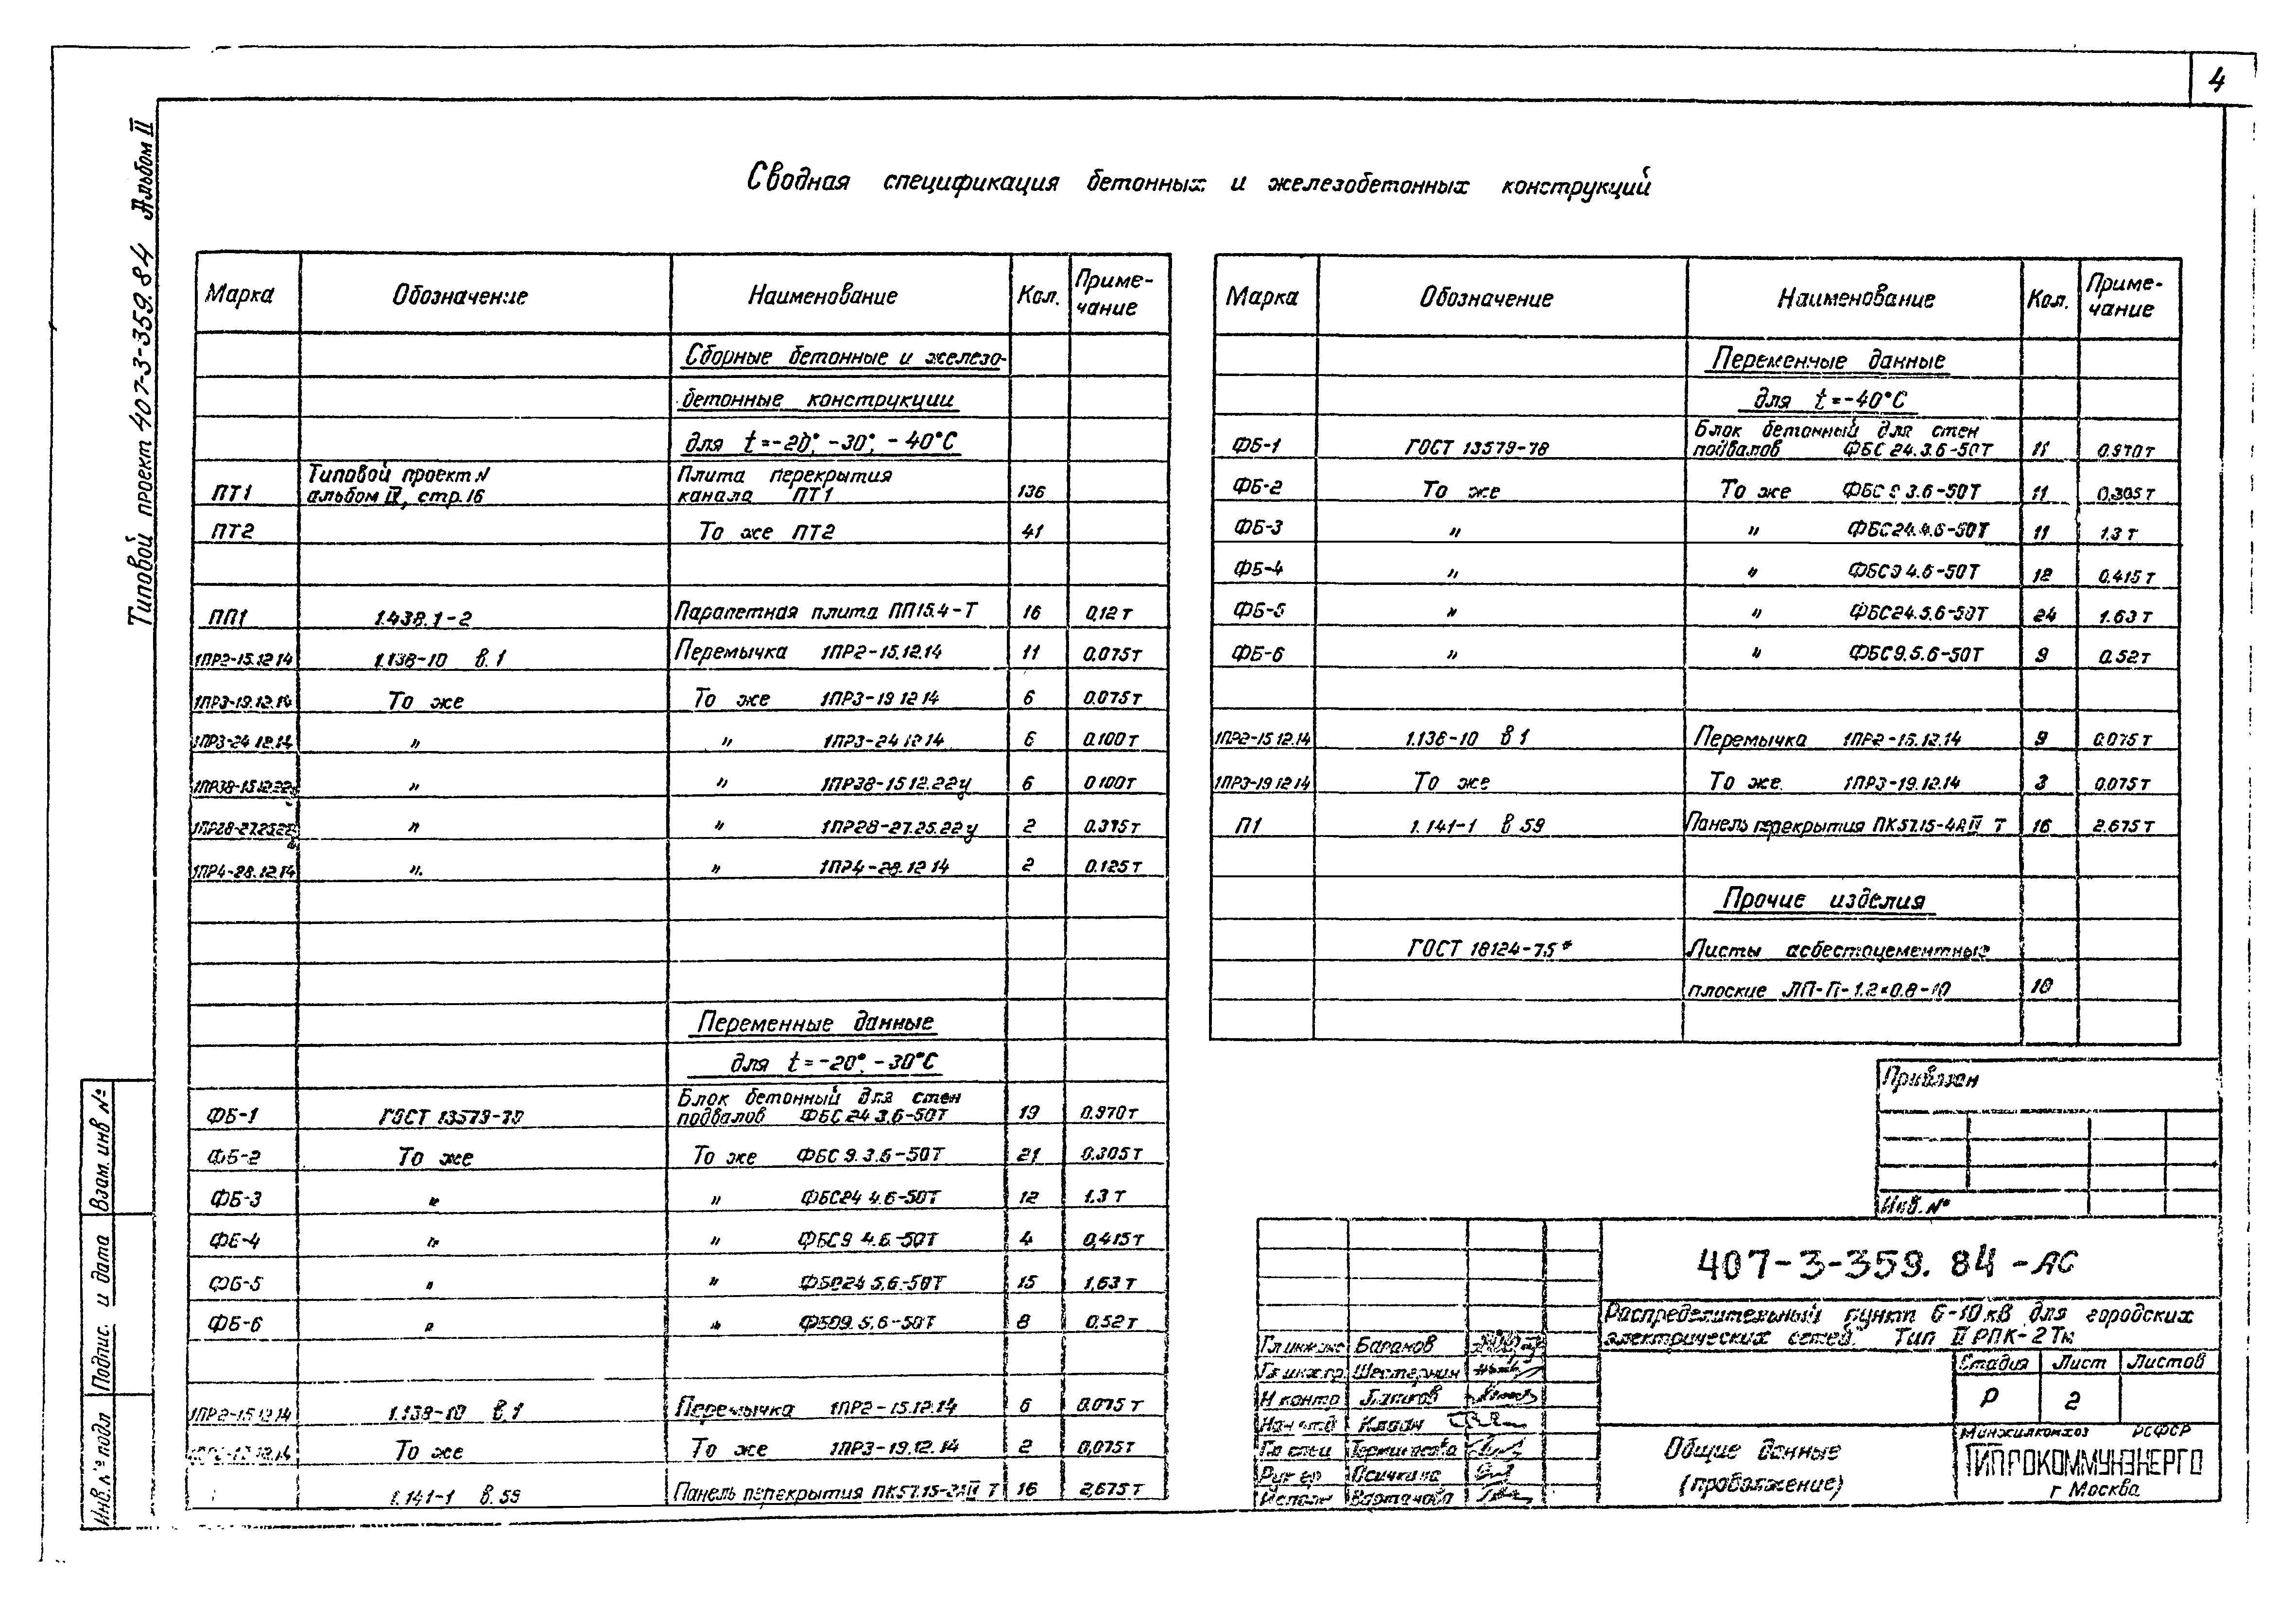 4
Типовой проект 407-3-359.84 Альбом II
Сводная спецификация бетонных и железобетонных конструкций
Марка Обозначение Наименование Кол. Приме-
чание
Сборные бетонные и железо-
бетонные конструкции
для t=-20°, -30°, -40°С
ПТ1 Типовой проект N
альбом IV, стр.16 Плита перекрытия
канала ПТ1 136
ПТ2 То же ПТ2 41
ПП1 1.438.1-2 Парапетная плита ПП15.4-Т 16 0,12 т
1ПР2-15.12.14 1.138-10 в.1 Перемычка 1ПР2-15.12.14 11 0.075т
1ПР3-19.12.14 То же То же 1ПР3-19 12 14 6 0.075т
1ПР3-24.12.14 " " 1ПР3-24 12 14 6 0.100 т
1ПР38-15.12.22у " " 1ПР38-15 12.22у 6 0 100т
1ПР28-27.25.22у " " 1ПР28-27.25.22у 2 0.375т
1ПР4-28.12.14 " " 1ПР4-28.12 14 2 0.125 т
Переменные данные
для t=-20°, -30°С
ФБ-1 ГОСТ 13579-78 Блок бетонный для стен
подвалов ФБС 24 3.6-50Т 19 0.970т
ФБ-2 То же То же ФБС 9.3.6-50Т 21 0.305т
ФБ-3 " " ФБС24 4.6-50Т 12 1.3 т
ФБ-4 " " ФБС9 4.6-50Т 4 0,415т
ФБ-5 " " ФБС24 5.6-50Т 15 1,63 т
ФБ-6 " " ФБС9.5.6-50Т 8 0,52т
1ПР2-15 12 14 1.138-10 в.1 Перемычка 1ПР2-15.12.14 6 0.075 т
То же То же 1ПР3-19.12.14 2 0,075т
1.141-1 в.59 Панель перекрытия 16 2,675 т
Марка Обозначение Наименование Кол. Приме-
чание
Переменные данные
для t=-40°С
ФБ-1 ГОСТ 13579-78 Блок бетонный для стен
подвалов ФБС 24.3.6-50Т 11 0.970т
ФБ-2 То же То же ФБС 9 3.6-50Т 11 0.305 т
ФБ-3 " " ФБС24.4.6-50Т 11 1.3 т
ФБ-4 " " ФБС9 4.6-50Т 12 0.415 т
ФБ-5 " " ФБС24.5.6-50Т 24 1.63 т
ФБ-6 " " ФБС9.5.6-50Т 9 0.52т
1ПР2-15 12.14 1.138-10 в 1 Перемычка 1ПР2-15.12.14 9 0.075 т
1ПР3-19 12 14 То же То же 1ПР3-19.12.14 3 0.075 т
П1 1.141-1 в 59 Панель перекрытия ПК57.15-4АIV Т 16 2.675 т
Прочие изделия
ГОСТ 18124-75* Листы асбестоцементные
плоские ЛП-П-1.2×0.8-10 10
Привязан
Инв. №
407-3-359.84-АС
Распределительный пункт 6-10 кВ для городских
электрических сетей. Тип II РПК-2Тм
Стадия Лист Листов
Р 2
Гл инж ин Баранов
Гл инж.пр Шестернин
Н контр
Нач отд
Гл спец
Рук гр Осичкина
Исполн
Общие данные
(продолжение)
Минжилкомхоз РСФСР
ГИПРОКОММУНЭНЕРГО
г Москва
Взам. инв №
Подпис. и дата
Инв. № подл